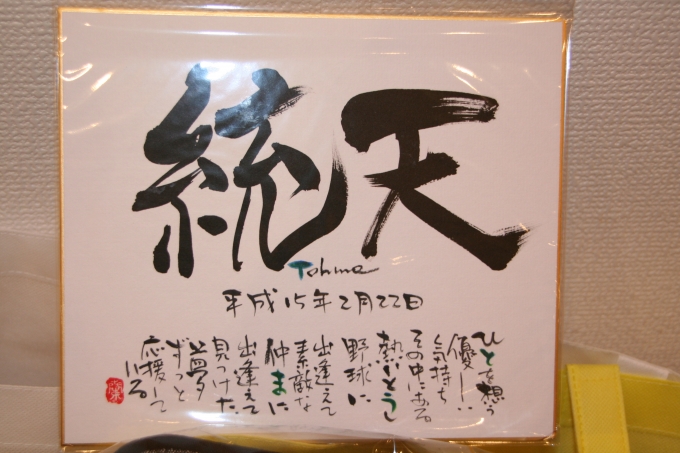 統天
Tohma
平成15年2月22日
ひとを想う
優しい
気持ち
その中にある
熱いとうし
野球に
出逢えて
素敵な
仲まに
出逢えて
見つけた
夢
ずっと
応援して
いる